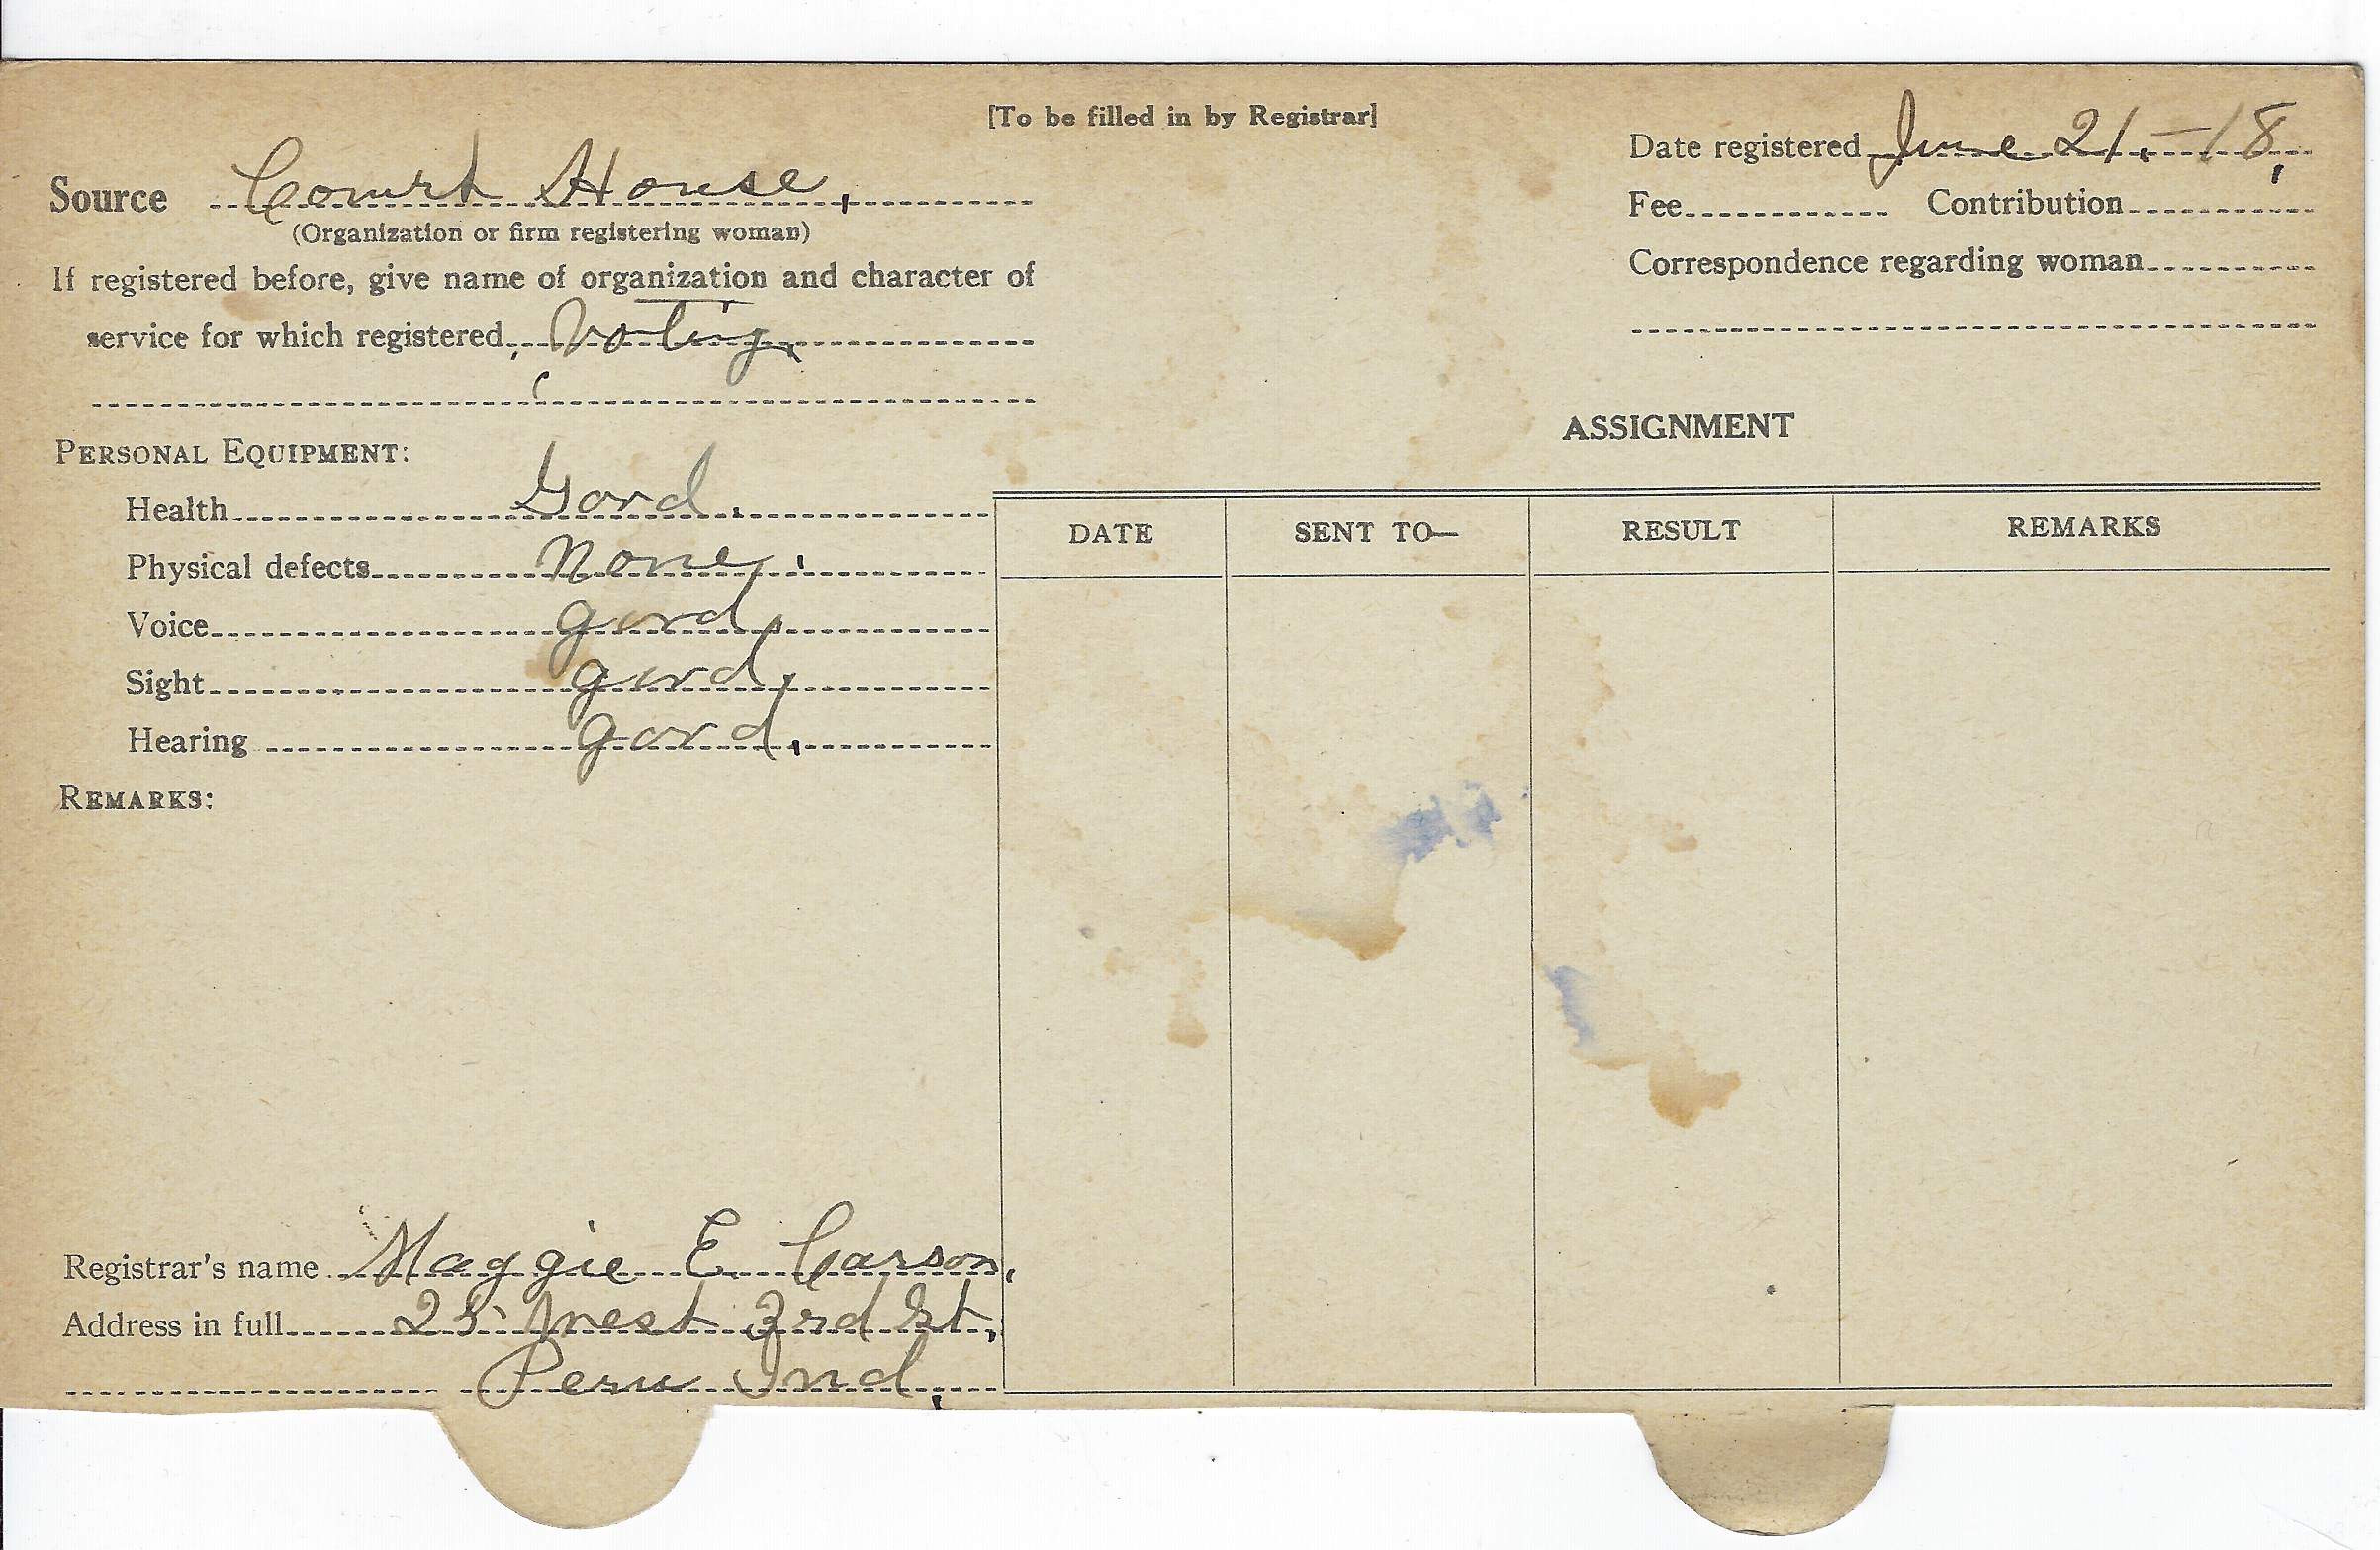 [To be filled in by Registrar]
Date registered June 21.-18,
Source Court House,
(Organization or firm registering woman)
Fee Contribution
If registered before, give name of organization and character of
Correspondence regarding woman
service for which registered, Voting,
ASSIGNMENT
PERSONAL EQUIPMENT:
Health Good.
DATE SENT TO— RESULT REMARKS
Physical defects None.
Voice good.
Sight good,
Hearing good,
REMARKS:
Registrar's name Maggie E. Carson,
Address in full 25 West 3rd St,
Peru Ind,